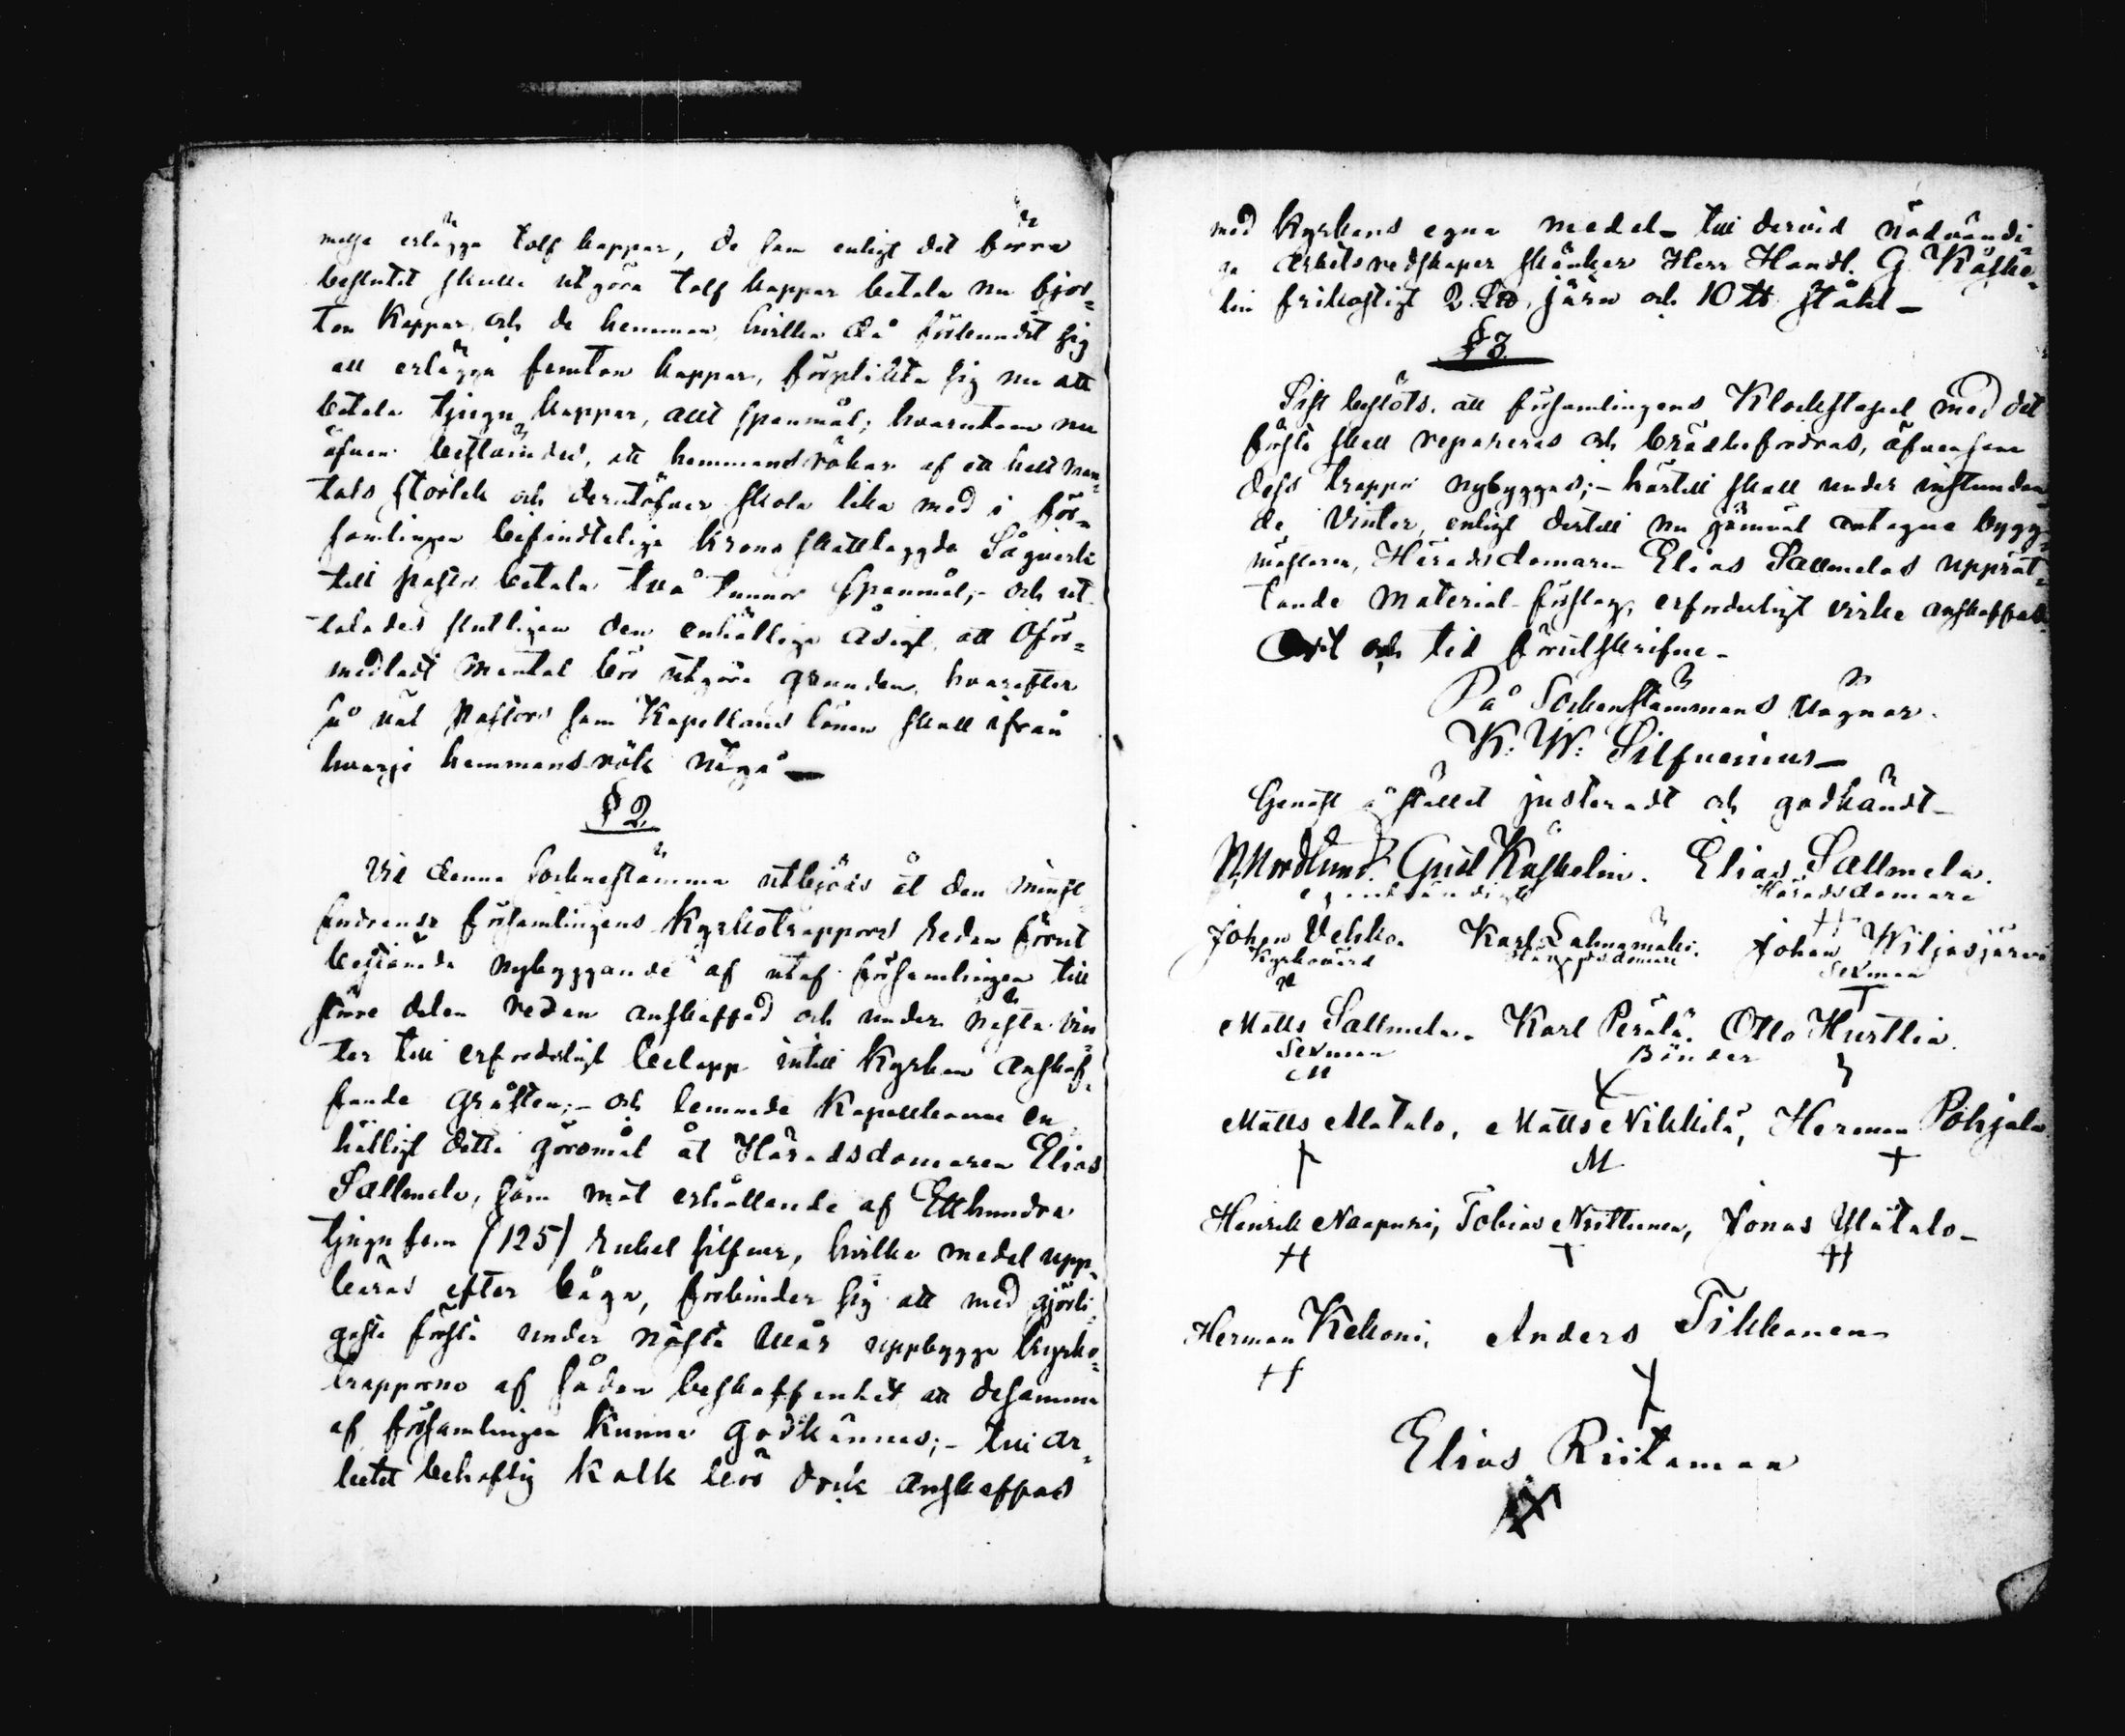 melse erlägga tolf kappar, de som enligt det förra
beslutet skulle utgöra tolf kappar betala nu fjor-
ton kappar, och de hemman, hvilka då förbundit sig
att erlägga femton kappar, förplikta sig nu att
betala tjugu kappar, allt spanmål; hvarutom nu
äfven bestämdes, att hemmansrökar af ett helt man-
tals storlek och derutöfver skola lika med i för-
samlingen befindtelige krono skattlagda Sågverk
till pastor betala två tunnor spanmål;- och ut-
talades slutligen den enhälliga åsigt, att oför-
medladt mantal bör utgöra grunden, hvarefter
så väl Pastors som Kapellans lönen skall ifrån
hvarje hemmansrök utgå —
§ 2.
Vid denna Sockenstämma utbjöds åt den minst-
fodrande församlingens Kyrkotrappors redan förut
bestämda nybyggande af utaf församlingen till
större delen redan anskaffad och under nästa vin-
ter till erforderligt belopp intill Kyrkan anskaf-
fande gråsten;- och lemnade Kapellboerne en-
hälligt detta göromål åt Häradsdomaren Elias
Sallmela, som mot erhållande af Etthundra
tjugu fem (125) rubel silfver, hvilka medel upp-
bäras efter båga, förbinder sig att med gjörli-
gaste första under nästa vår uppbygga kyrko-
trapporna af sådan beskaffenhet att desamma
af församlingen kunna godkännas;- till ar-
betet behöflig kalk bör dock anskaffas
med kyrkans egna medel - till dervid nödvändi-
ga arbetsredskaper skänker Herr Handl. G. Kåske-
lin frikostigt 2 L℔ järn och 10 ℔ stål —
§ 3
Sist beslöts, att församlingens Klockstapel med det
första skall repareras och brädbefodras, äfvensom
dess trappa nybyggas;- härtill skall under instundan-
de Vinter, enligt dertill nu jämväl antagne bygg-
mästaren, Häradsdomaren Elias Sallmelas upprät-
tande Material-förslag, erforderligt virke anskaffas.
Ort och tid förutskrifne -
På Sockenstämmans vägnar.
K: W: Silfvenius —
Genast å stället justeradt och godkändt —
N. Nordlund. Gust Kåskelin. Elias Sallmela.
Häradsdomare
Johan Vehka. Karl Salmamäki. Johan Wiljasjärvi
Kyrkovärd Häradsdomare Sexman
Matts Sallmela. Karl Perälä. Otto Hurttia.
Sexman Bönder
M
Matts Matalo, Matts Nikkilä, Herman Pohjola
M
Henrik Naapuri, Tobias Niittunen, Jonas Ylitalo -
Herman Kekoni, Anders Tikkanen
Elias Riitamaa